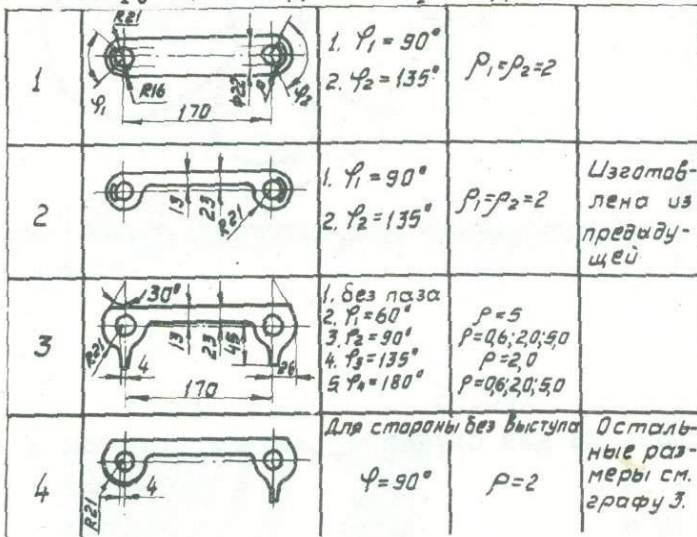 1
R21
φ₁
R16
170
Ф22
ρ
φ₂
1. φ₁ = 90°
2. φ₂ = 135°
ρ₁=ρ₂=2
2
13
23
R21
1. φ₁ = 90°
2. φ₂ = 135°
ρ₁=ρ₂=2
Изготов-
лена из
предыду-
щей
3
30°
R21
4
13
23
45
26
170
1. без паза
2. φ₁=60°
3. φ₂=90°
4. φ₃=135°
5. φ₄=180°
ρ=5
ρ=0,6; 2,0; 5,0
ρ=2,0
ρ=0,6; 2,0; 5,0
4
R21
4
Для стороны без выступа
φ=90°
ρ=2
Осталь-
ные раз-
меры см.
графу 3.